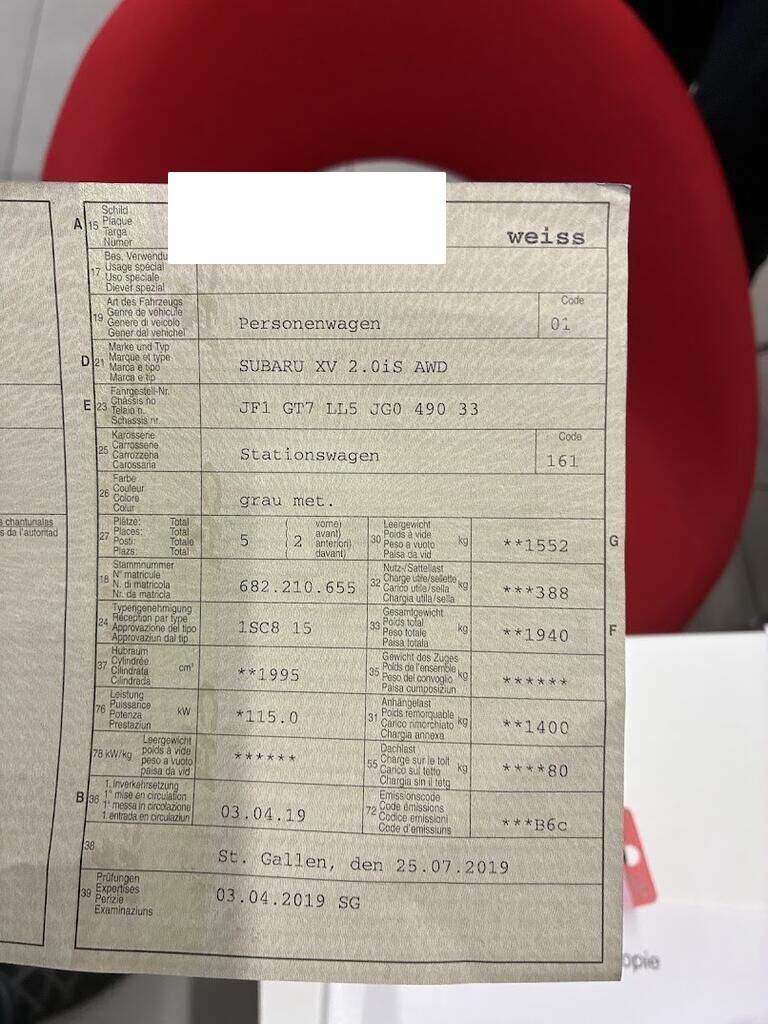 A 15 Schild
Plaque
Targa
Numer
weiss
17 Bes. Verwendu
Usage spécial
Uso speciale
Diever spezial
19 Art des Fahrzeugs
Genre de véhicule
Genere di veicolo
Gener dal vehichel
Personenwagen
Code
01
D 21 Marke und Typ
Marque et type
Marca e tipo
Marca e tip
SUBARU XV 2.0iS AWD
E 23 Fahrgestell-Nr.
Châssis no
Telaio n.
Schassis nr.
JF1 GT7 LL5 JG0 490 33
25 Karosserie
Carrosserie
Carrozzeria
Carossaria
Stationswagen
Code
161
26 Farbe
Couleur
Colore
Colur
grau met.
s chantunalas
s da l'autoritad
27 Plätze: Total
Places: Total
Posti: Totale
Plazs: Total
5
( vorne)
2 avant)
anteriori)
davant)
30 Leergewicht
Poids à vide
Peso a vuoto
Paisa da vid
kg
**1552
G
18 Stammnummer
N° matricule
N. di matricola
Nr. da matricla
682.210.655
32 Nutz-/Sattellast
Charge utile/sellette
Carico utile/sella
Chargia utila/sella
kg
***388
24 Typengenehmigung
Réception par type
Approvazione del tipo
Approvaziun dal tip
1SC8 15
33 Gesamtgewicht
Poids total
Peso totale
Paisa totala
kg
**1940
F
37 Hubraum
Cylindrée
Cilindrata
Cilindrada
cm³
**1995
35 Gewicht des Zuges
Poids de l'ensemble
Peso del convoglio
Paisa cumposiziun
kg
******
76 Leistung
Puissance
Potenza
Prestaziun
kW
*115.0
31 Anhängelast
Poids remorquable
Carico rimorchiato
Chargia annexa
kg
**1400
78 kW/kg Leergewicht
poids à vide
peso a vuoto
paisa da vid
******
55 Dachlast
Charge sur le toit
Carico sul tetto
Chargia sin il tetg
kg
****80
B 36 1. Inverkehrsetzung
1re mise en circulation
1a messa in circolazione
1. entrada en circulaziun
03.04.19
72 Emissionscode
Code émissions
Codice emissioni
Code d'emissiuns
***B6c
38
St. Gallen, den 25.07.2019
39 Prüfungen
Expertises
Perizie
Examinaziuns
03.04.2019 SG
opie